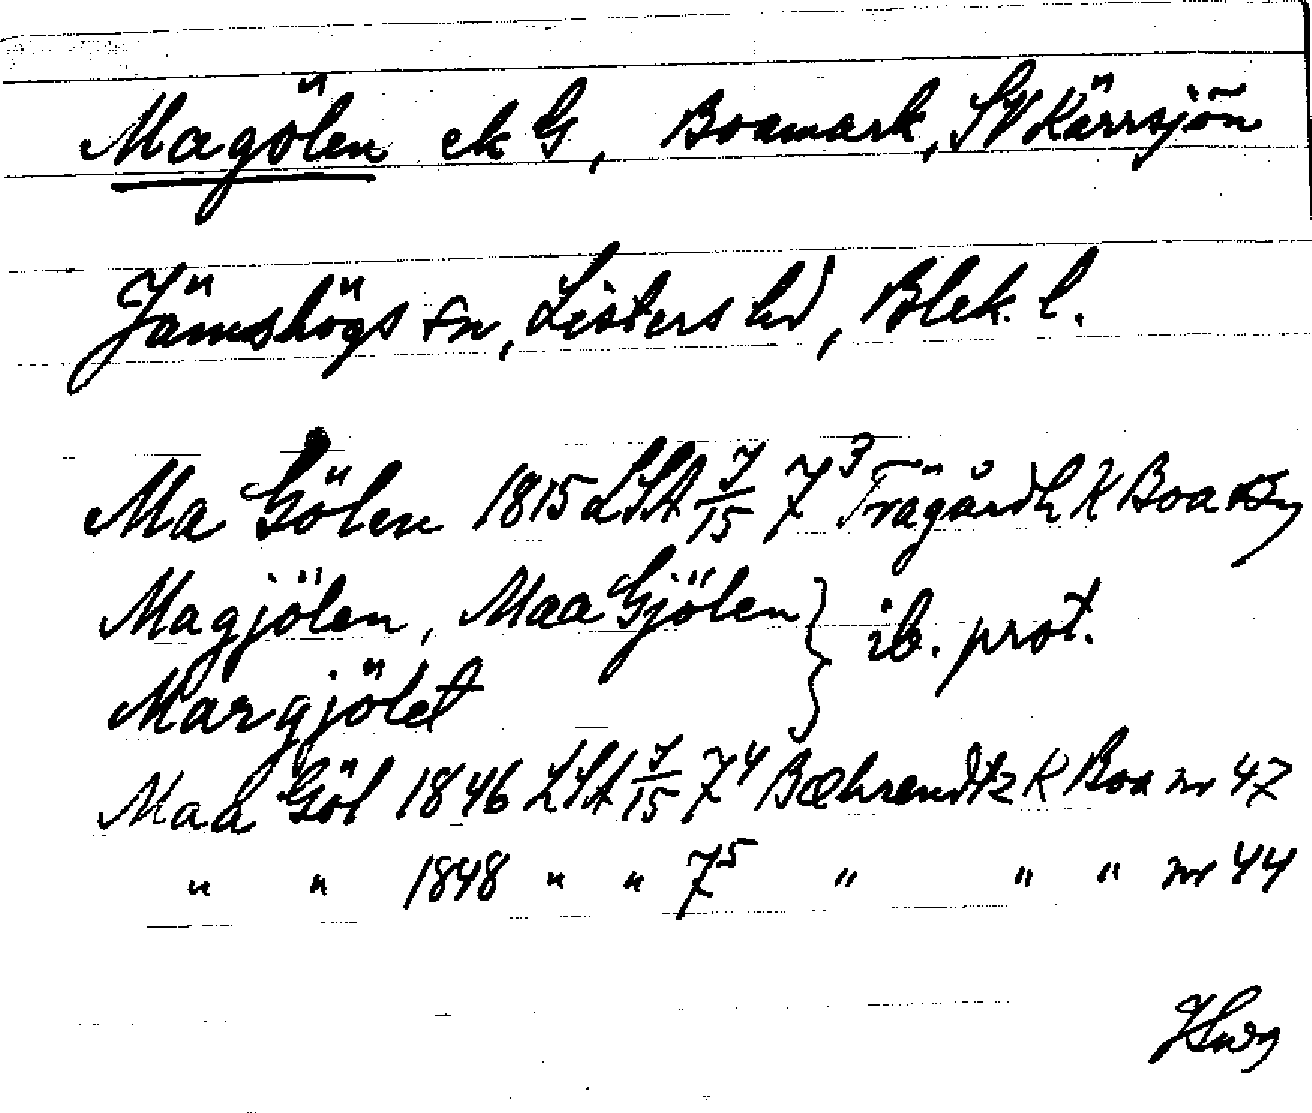 Magölen ek G, Boamark, SV Kärrsjön
Jämshögs sn, Listers hd, Blek. l.
Ma Gölen 1815 LSA J/15 7³ Trägårdh K Boa By
Magjölen, Maa Gjölen } ib. prot.
Margjölet
Maa Göl 1846 LSA J/15 7⁴ Bæhrendtz K Boa nr 47
" " 1848 " " 7⁵ " " " nr 44